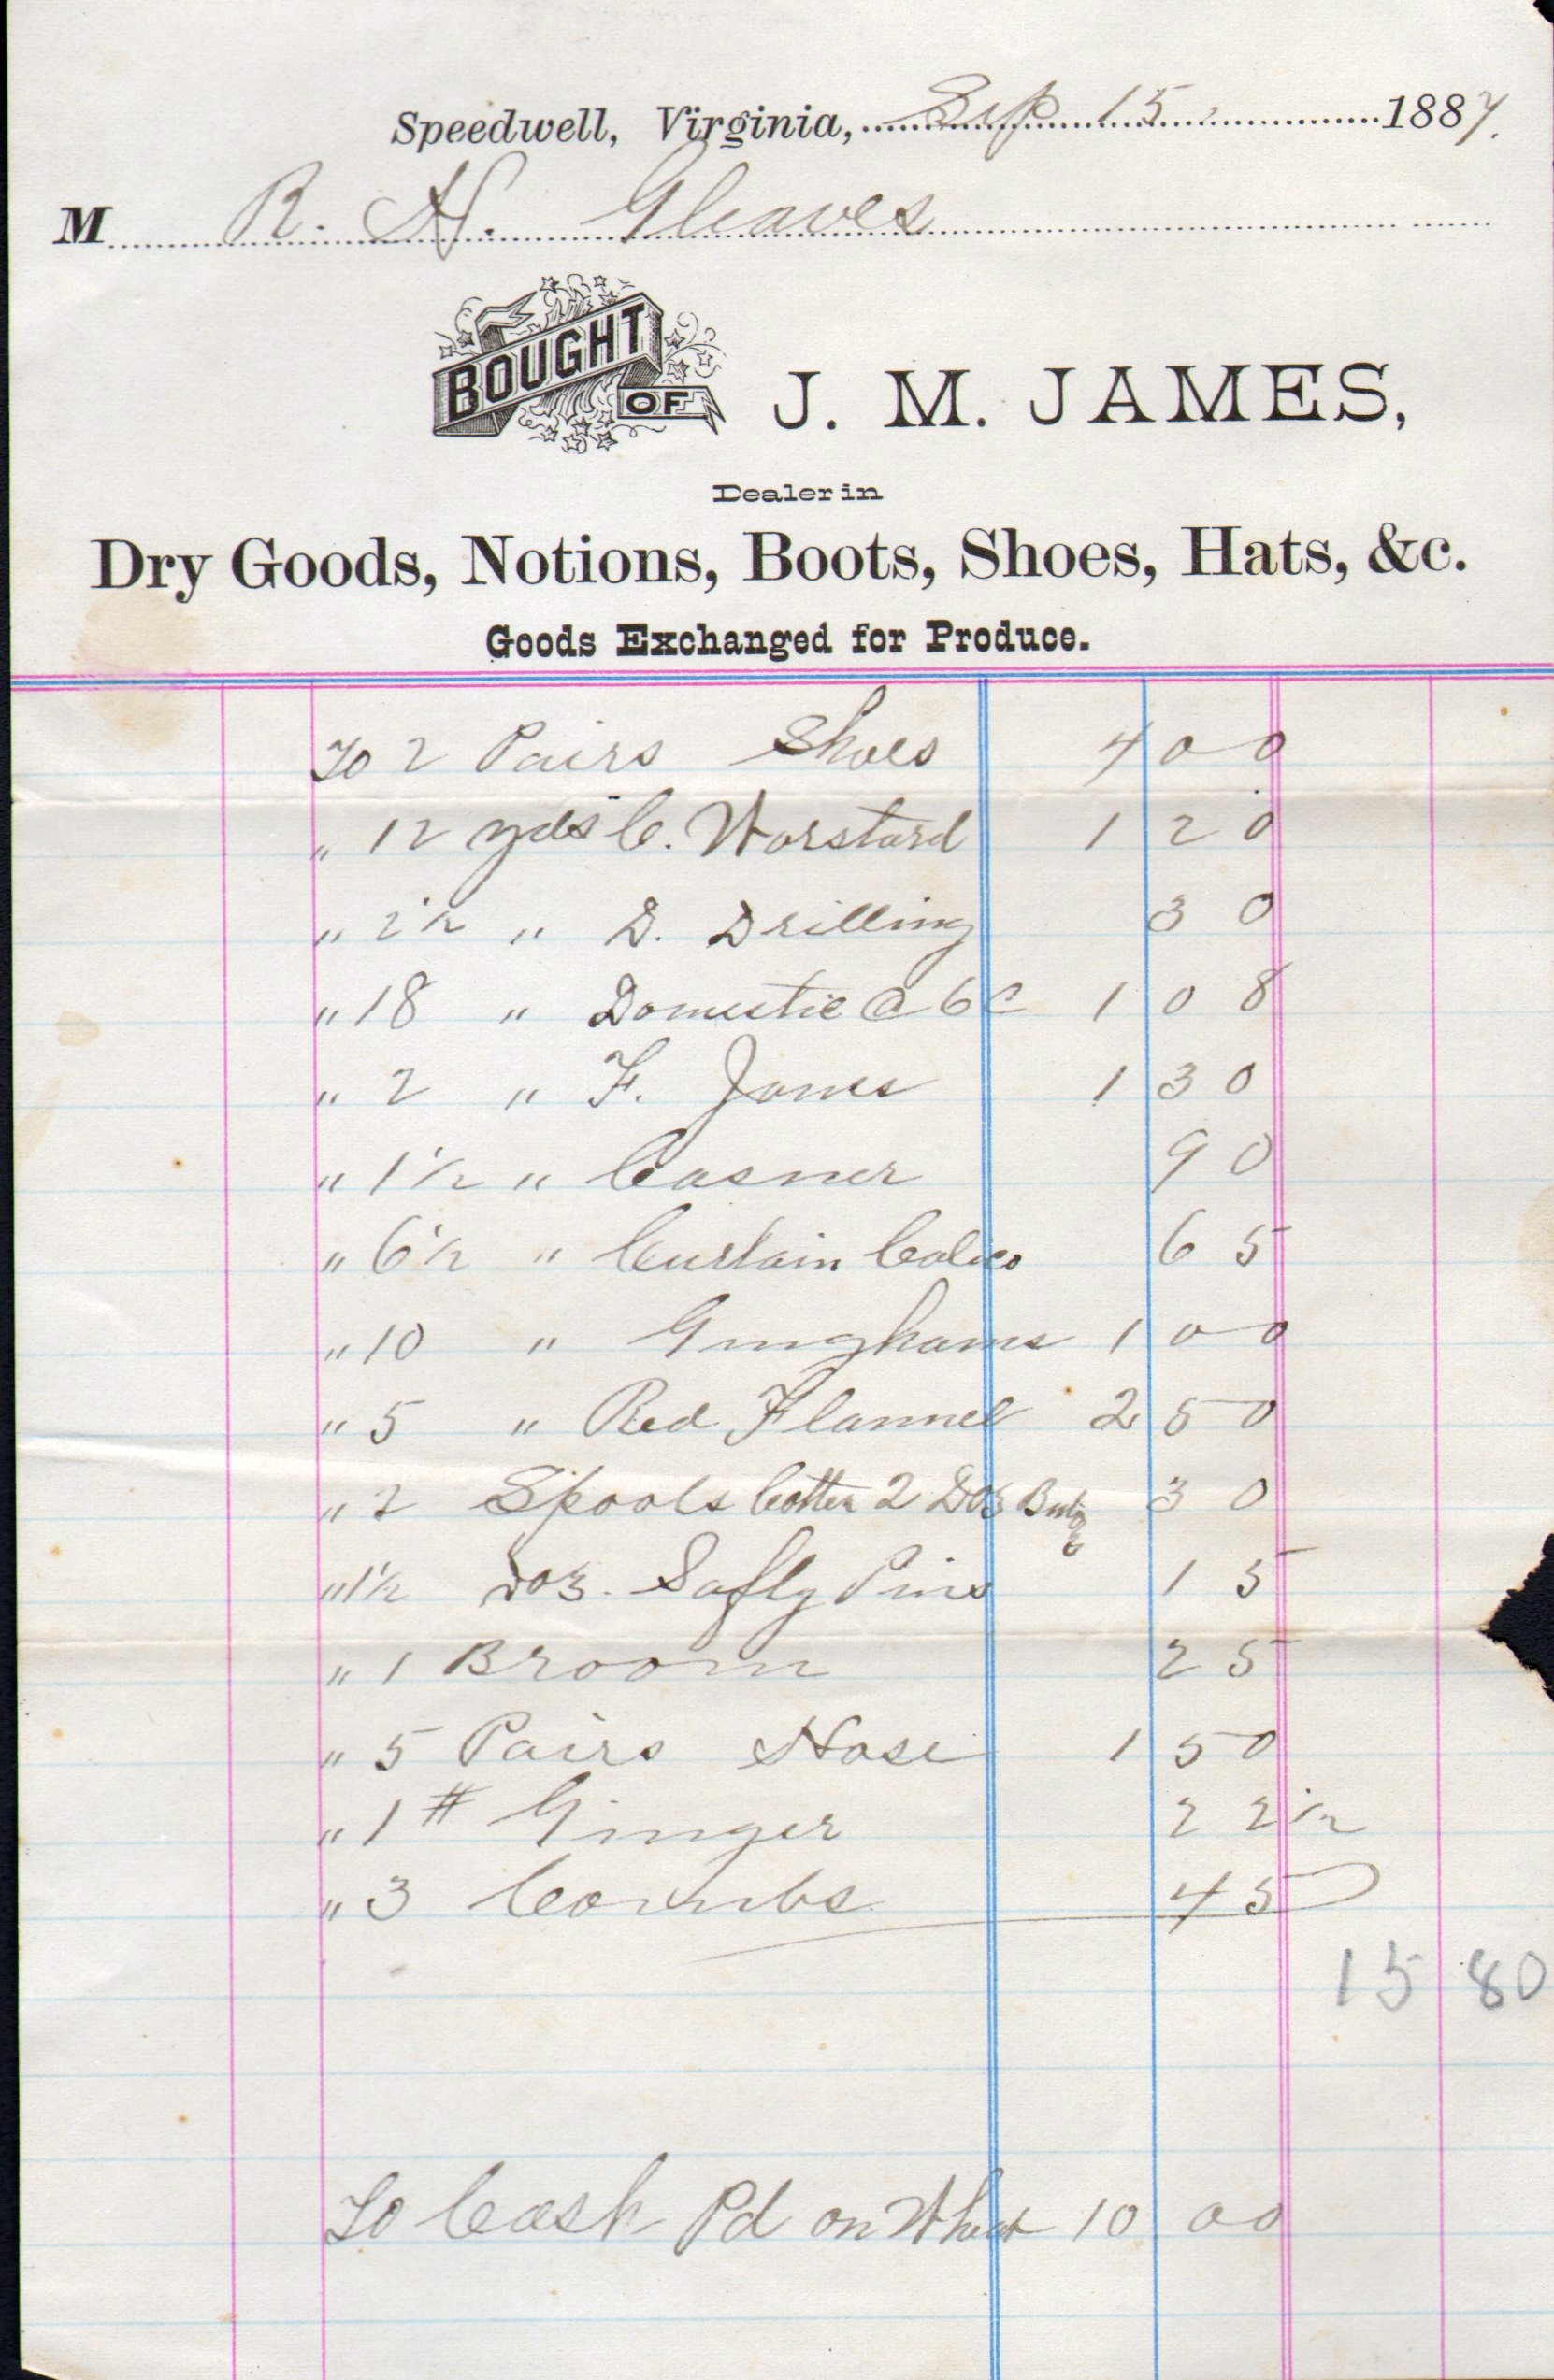 Speedwell, Virginia, Sep 15 1887.
M R. H. Gleaves
BOUGHT OF J. M. JAMES,
Dealer in
Dry Goods, Notions, Boots, Shoes, Hats, &c.
Goods Exchanged for Produce.
To 2 Pairs Shoes 4 00
" 12 yds C. Worstard 1 20
" 2 1/2 " D. Drilling 30
" 18 " Domestic @ 6c 1 08
" 2 " F. Janes 1 30
" 1 1/2 " Casner 90
" 6 1/2 " Curtain Calico 65
" 10 " Ginghams 1 00
" 5 " Red Flannel 2 50
" 2 Spools Cotten 2 Doz 30
" 1 1/2 Doz. Safty Pins 15
" 1 Broom 25
" 5 Pairs Hose 1 50
" 1 # Ginger 22 1/2
" 3 Combs 45
15 80
To Cash Pd on Wheat 10 00